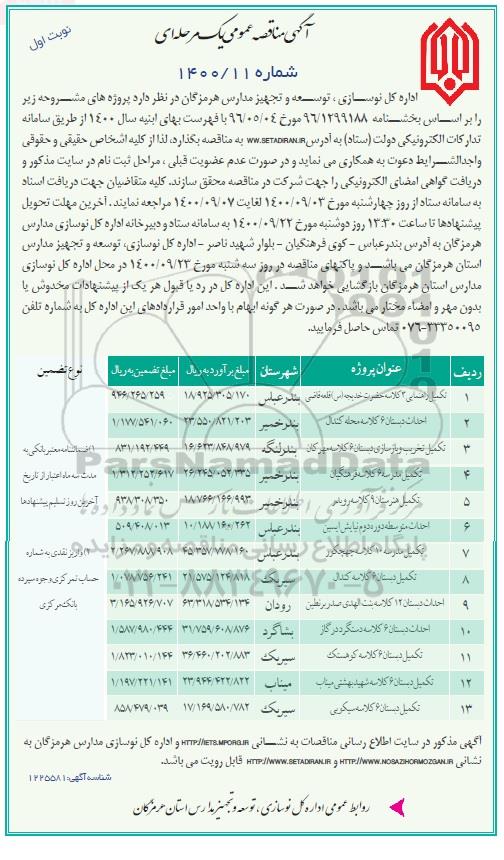 آگهی مناقصه عمومی یک مرحله ای
نوبت اول
شماره ۱۴۰۰/۱۱
اداره کل نوسازی ، توسعه و تجهیز مدارس هرمزگان در نظر دارد پروژه های مشروحه زیر
را بر اساس بخشنامه ۹۶/۱۲۹۹۱۸۸ مورخ ۹۶/۰۵/۰۴ با فهرست بهای ابنیه سال ۱۴۰۰ از طریق سامانه
تدارکات الکترونیکی دولت (ستاد) به آدرس WW.SETADIRAN.IR به مناقصه بگذارد، لذا از کلیه اشخاص حقیقی و حقوقی
واجدالشرایط دعوت به همکاری می نماید و در صورت عدم عضویت قبلی ، مراحل ثبت نام در سایت مذکور و
دریافت گواهی امضای الکترونیکی را جهت شرکت در مناقصه محقق سازند. کلیه متقاضیان جهت دریافت اسناد
به سامانه ستاد از روز چهارشنبه مورخ ۱۴۰۰/۰۹/۰۳ لغایت ۱۴۰۰/۰۹/۰۷ مراجعه نمایند. آخرین مهلت تحویل
پیشنهادها تا ساعت ۱۳:۳۰ روز دوشنبه مورخ ۱۴۰۰/۰۹/۲۲ به سامانه ستاد و دبیرخانه اداره کل نوسازی مدارس
هرمزگان به آدرس بندرعباس - کوی فرهنگیان - بلوار شهید ناصر - اداره کل نوسازی، توسعه و تجهیز مدارس
استان هرمزگان می باشد و پاکتهای مناقصه در روز سه شنبه مورخ ۱۴۰۰/۰۹/۲۳ در محل اداره کل نوسازی
مدارس استان هرمزگان بازگشایی خواهد شد . این اداره کل در رد یا قبول هر یک از پیشنهادات مخدوش یا
بدون مهر و امضاء مختار می باشد . در صورت هر گونه ابهام با واحد امور قراردادهای این اداره کل به شماره تلفن
۰۷۶-۳۳۳۵۰۰۹۵ تماس حاصل فرمایید.
ردیف عنوان پروژه شهرستان مبلغ برآورد به ریال مبلغ تضمین به ریال نوع تضمین
۱ تکمیل راهنمایی ۳ کلاسه حضرت خدیجه (س) قلعه قاضی بندرعباس ۱۸/۹۲۵/۳۰۵/۱۷۰ ۹۴۶/۲۶۵/۲۵۹
۲ احداث دبستان ۶ کلاسه محله کندال بندرخمیر ۲۳/۵۵۰/۸۲۱/۲۰۳ ۱/۱۷۷/۵۴۱/۰۶۰
۳ تکمیل تخریب و بازسازی دبستان ۶ کلاسه مهرکان بندرلنگه ۱۶/۶۲۳/۸۴۸/۹۷۹ ۸۳۱/۱۹۲/۴۴۹
۴ تکمیل مدرسه ۶ کلاسه فرهنگیان بندرخمیر ۲۶/۲۴۵/۰۵۲/۳۳۵ ۱/۳۱۲/۲۵۲/۶۱۷
۵ تکمیل هنرستان ۹ کلاسه رویدر بندرخمیر ۱۸/۷۶۶/۱۶۶/۹۹۳ ۹۳۸/۳۰۸/۳۵۰
۶ احداث متوسطه دوره دوم نیایش ایسین بندرعباس ۱۰/۱۸۸/۱۶۰/۲۶۲ ۵۰۹/۴۰۸/۰۱۳
۷ تکمیل مدرسه ۱۰ کلاسه چهچکور بندرعباس ۴۵/۳۵۷/۷۷۸/۱۶۰ ۲/۲۶۷/۸۸۸/۹۰۸
۸ تکمیل دبستان ۶ کلاسه کندال سیریک ۲۱/۵۷۵/۱۲۴/۸۱۸ ۱/۰۷۸/۷۵۶/۲۴۱
۹ احداث دبستان ۱۲ کلاسه بنت الهدی صدر برنطین رودان ۶۳/۳۱۸/۵۳۴/۱۳۴ ۳/۱۶۵/۹۲۶/۷۰۷
۱۰ احداث دبستان ۶ کلاسه دستگرد در گاز بشاگرد ۳۱/۷۵۹/۶۰۸/۸۷۶ ۱/۵۸۷/۹۸۰/۴۴۴
۱۱ تکمیل دبستان ۶ کلاسه کوهستک سیریک ۳۶/۴۶۰/۲۰۲/۸۸۳ ۱/۸۲۳/۰۱۰/۱۴۴
۱۲ تکمیل دبستان ۶ کلاسه شهید بهشتی میناب میناب ۲۳/۹۴۴/۴۲۲/۸۲۲ ۱/۱۹۷/۲۲۱/۱۴۱
۱۳ تکمیل دبستان ۶ کلاسه سیکویی سیریک ۱۷/۱۶۹/۵۸۰/۷۸۲ ۸۵۸/۴۷۹/۰۳۹
۱) ضمانتنامه معتبر بانکی به
مدت سه ماه اعتبار از تاریخ
آخرین روز تسلیم پیشنهادها
۲) واریز نقدی به شماره
حساب تمرکزی وجوه سپرده
بانک مرکزی
آگهی مذکور در سایت اطلاع رسانی مناقصات به نشانی HTTP://IETS.MPORG.IR و اداره کل نوسازی مدارس هرمزگان به
نشانی HTTP://WWW.NOSAZIHORMOZGAN.IR و HTTP://WWW.SETADIRAN.IR قابل رویت می باشد.
شناسه آگهی: ۱۲۲۵۵۸۱
روابط عمومی اداره کل نوسازی ، توسعه و تجهیز مدارس استان هرمزگان
ParsNamadData
پایگاه اطلاع رسانی مناقصه و مزایده
۰۲۱-۸۸۳۴۹۶۷۰-۵